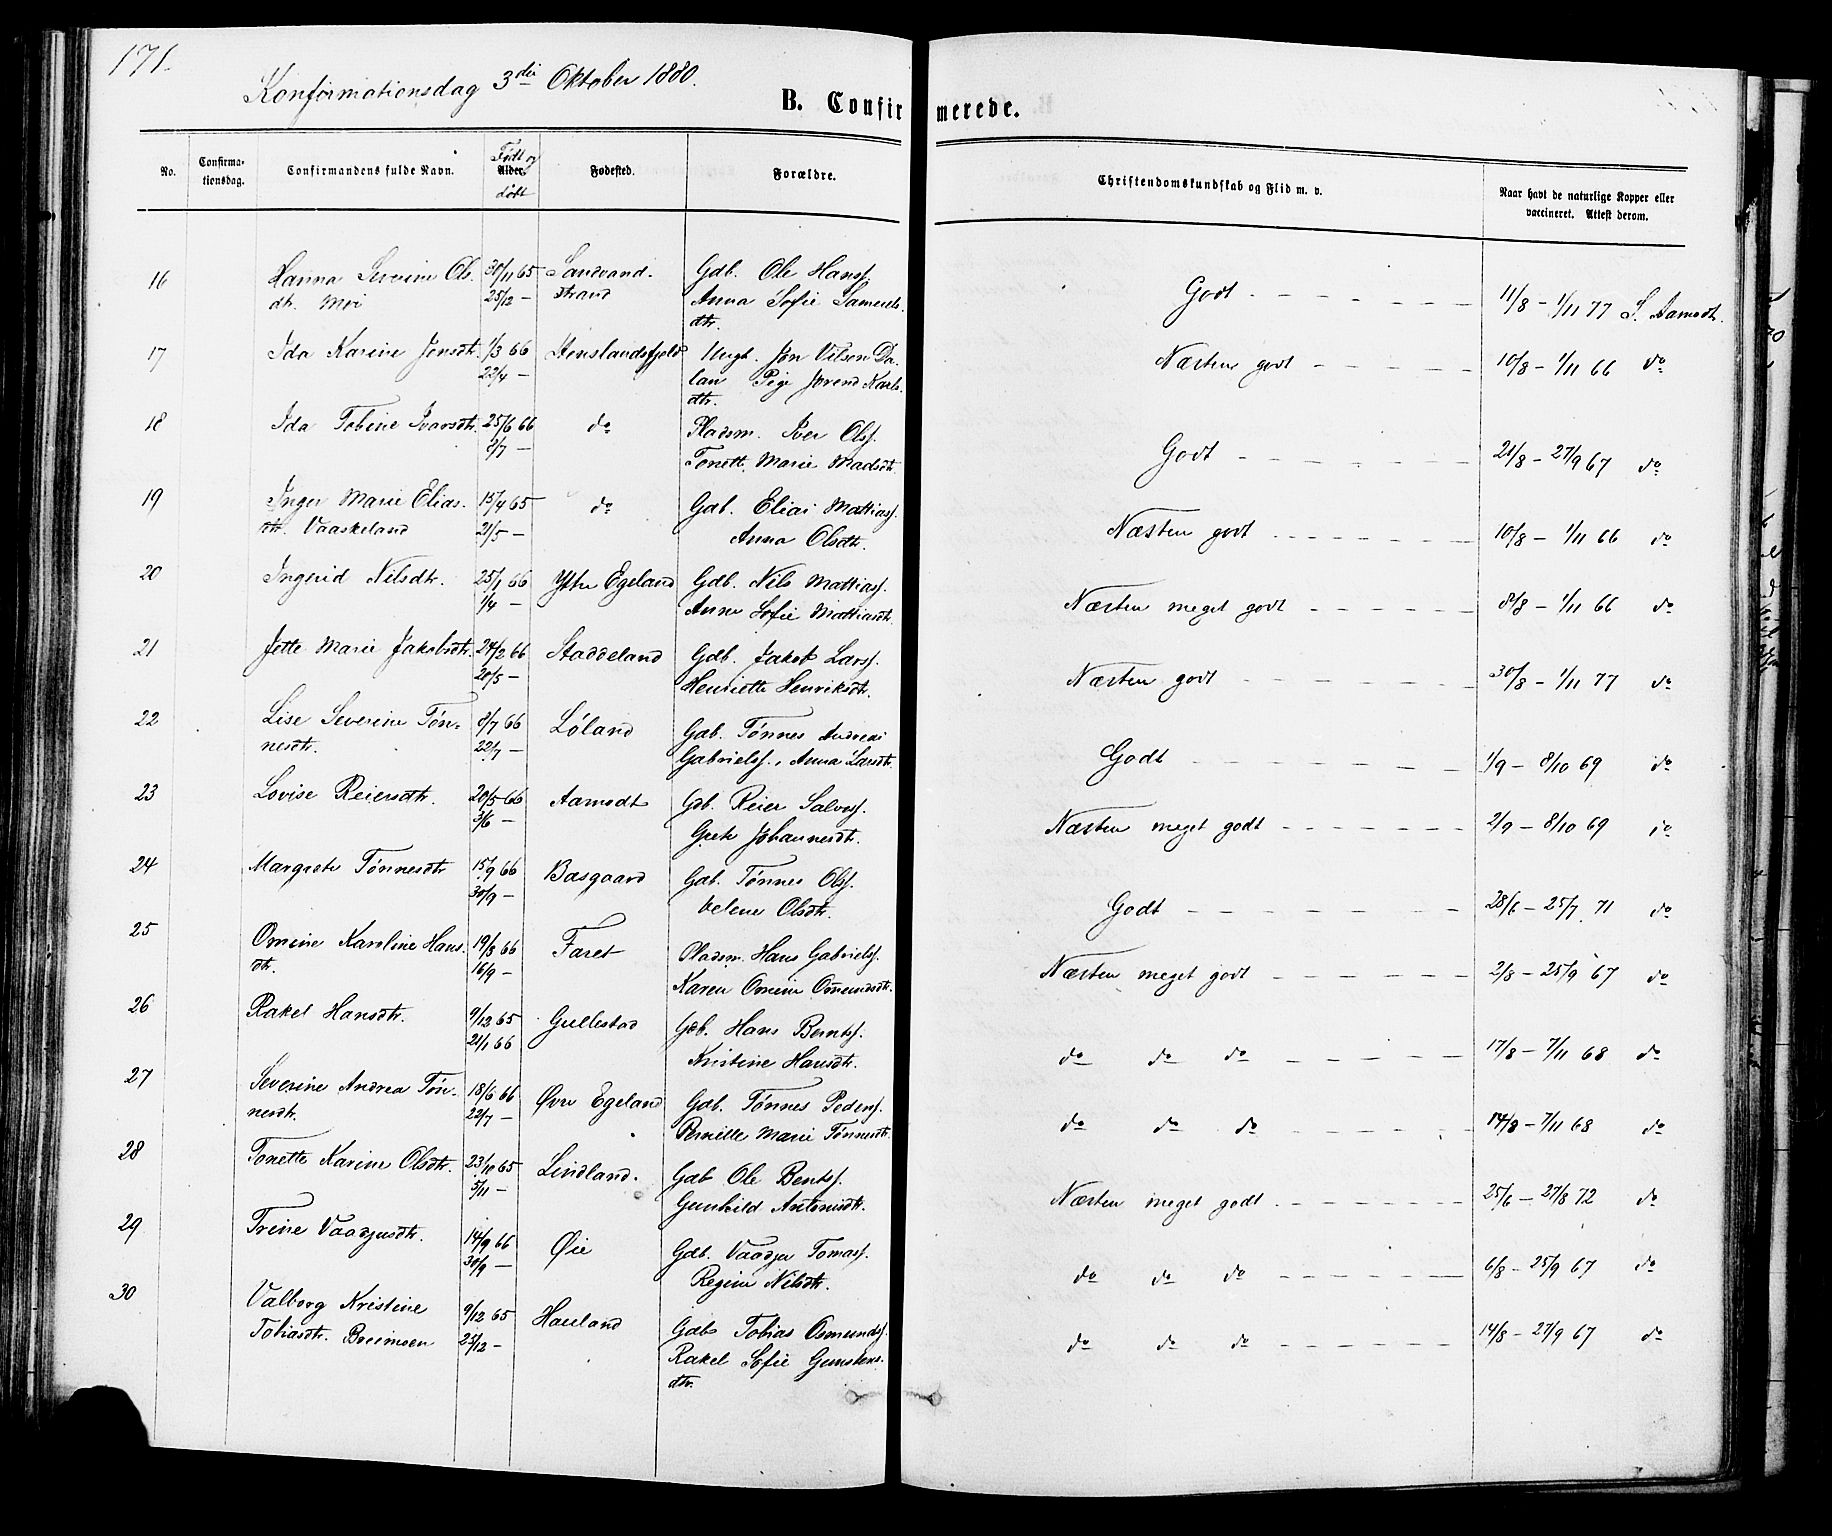 171.
Konfirmationsdag 3die Oktober 1880.
B. Confirmerede.
No. Confirma-tionsdag. Confirmandens fulde Navn. Født og Alder. døbt Fødested. Forældre. Christendomskundskab og Flid m. v. Naar havt de naturlige Kopper eller vaccineret. Attest derom.
16 Hanna Severine Ols- 30/11 65 Sandvand- Gdb. Ole Hanss. Godt 11/8 – 1/11 77 S. Aamodt.
dtr. Moi 25/12 – strand Anna Sofie Samuels-
dtr.
17 Ida Karine Jensdtr. 1/3 66 Stenslandsfjeld Ungk. Jon Vilson Da- Næsten godt 10/8 – 1/11 66 do
22/4 – lan Pige Jorend Karls-
dtr.
18 Ida Tobine Ivarsdtr. 25/6 66 do Pladsm. Iver Ols. Godt 21/8 – 27/9 67 do
8/7 – Tonette Marie Madsdtr.
19 Inger Marie Elias- 15/4 65 do Gdb. Elias Mattiass. Næsten godt 10/8 – 1/11 66 do
dtr. Vaaskeland 21/5 – Anna Olsdtr.
20 Ingerid Nilsdtr. 25/1 66 Ytre Egeland Gdb. Nils Mattiass. Næsten meget godt 8/8 – 1/11 66 do
1/4 – Anne Sofie Mattiasdtr.
21 Jette Marie Jakobsdtr. 24/2 66 Staddeland Gdb. Jakob Larss. Næsten godt 30/8 – 1/11 77 do
20/5 – Henriette Henriksdtr.
22 Lise Severine Tøn- 8/7 66 Løland Gdb. Tønnes Andreas Godt 1/9 – 8/10 69 do
nesdtr. 22/7 – Gabrielss., Anna Larsdtr.
23 Lovise Reiersdtr. 20/5 66 Aamodt Gdb. Reier Salves. Næsten meget godt 2/9 – 8/10 69 do
3/6 – Grete Johannesdtr.
24 Margrete Tønnesdtr 15/9 66 Basgaard Gdb. Tønnes Ols. Godt 28/6 – 25/7 71 do
30/9 – Velene Olsdtr.
25 Omine Karoline Hans- 19/8 66 Faret Pladsm. Hans Gabrielss. Næsten meget godt 2/8 – 25/9 67 do
dtr. 16/9 – Karen Omine Omundsdtr.
26 Rakel Hansdtr. 9/12 65 Gullestad Gdb. Hans Berntss. do do do 17/8 – 7/11 68 do
21/1 66 Kristine Hansdtr.
27 Severine Andrea Tøn- 18/6 66 Øvre Egeland Gdb. Tønnes Peders. do do do 14/8 – 7/11 68 do
nesdtr. 22/7 – Pernille Marie Tønnesdtr.
28 Tonette Karine Olsdtr. 23/10 65 Lindland. Gdb Ole Bentss. Næsten meget godt 25/6 – 27/8 72 do
5/11 – Gunhild Antonisdtr.
29 Trine Vaadjusdtr. 14/9 66 Øie Gdb. Vaadje Tomass. do do do 6/8 – 25/9 67 do
30/9 – Regine Nilsdtr.
30 Valborg Kristine 9/12 65 Hauland Gdb Tobias Osmunds. do do do 14/8 – 27/9 67 do
Tobiasdtr. Breimoen 25/12 – Rakel Sofie Gunstens-
dtr.